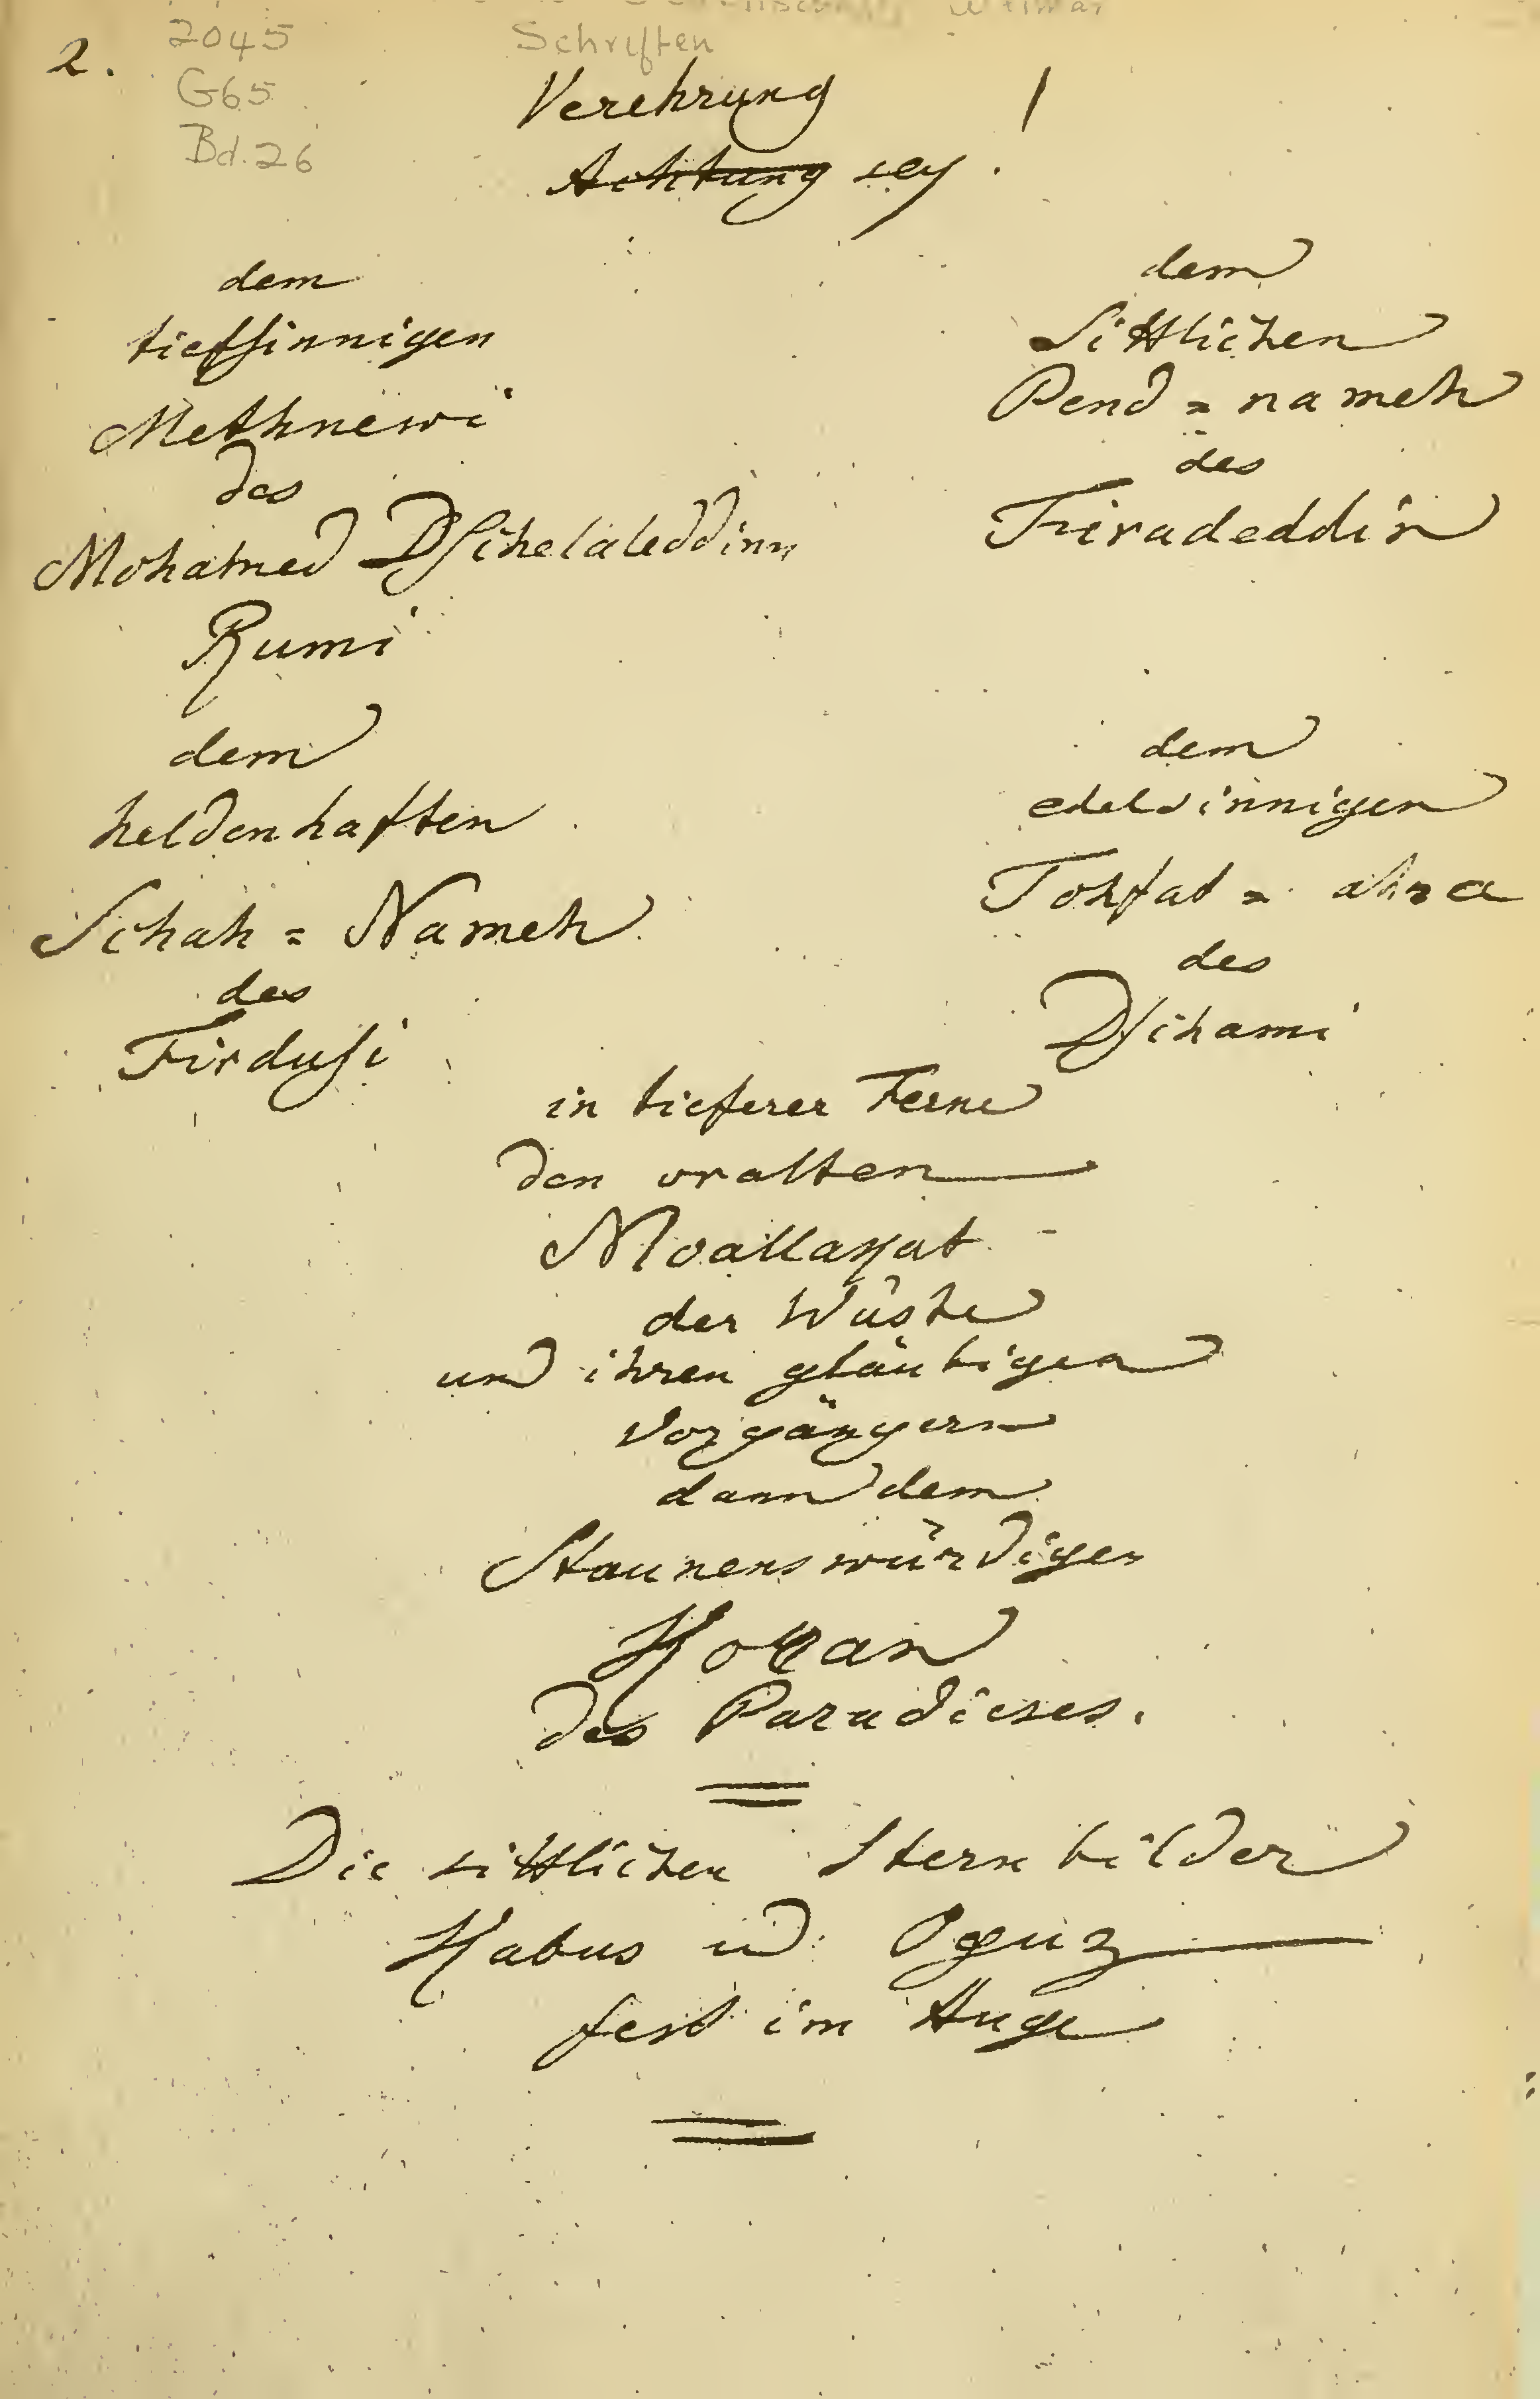 2.
2045
G65
Bd. 26
Schriften Weimar
Verehrung !
Achtung sey .
dem
tiefsinnigen
Methnewi
des
Mohamed Dschelaleddinn
Rumi
dem
Sittlichen
Pend = nameh
des
Firadeddin
dem
heldenhaften
Schah = Nameh
des
Firdusi
dem
edelsinnigen
Tohfat =
des
Dschami
in tieferer Ferne
den uralten
Moallaqat
der Wüste
und ihren gläubigen
Vorgängern
dann dem
Staunenswürdigen
Koran
des Paradieses.
Die sittlichen Sternbilder
Kabus ud: Oguz
fest im Auge